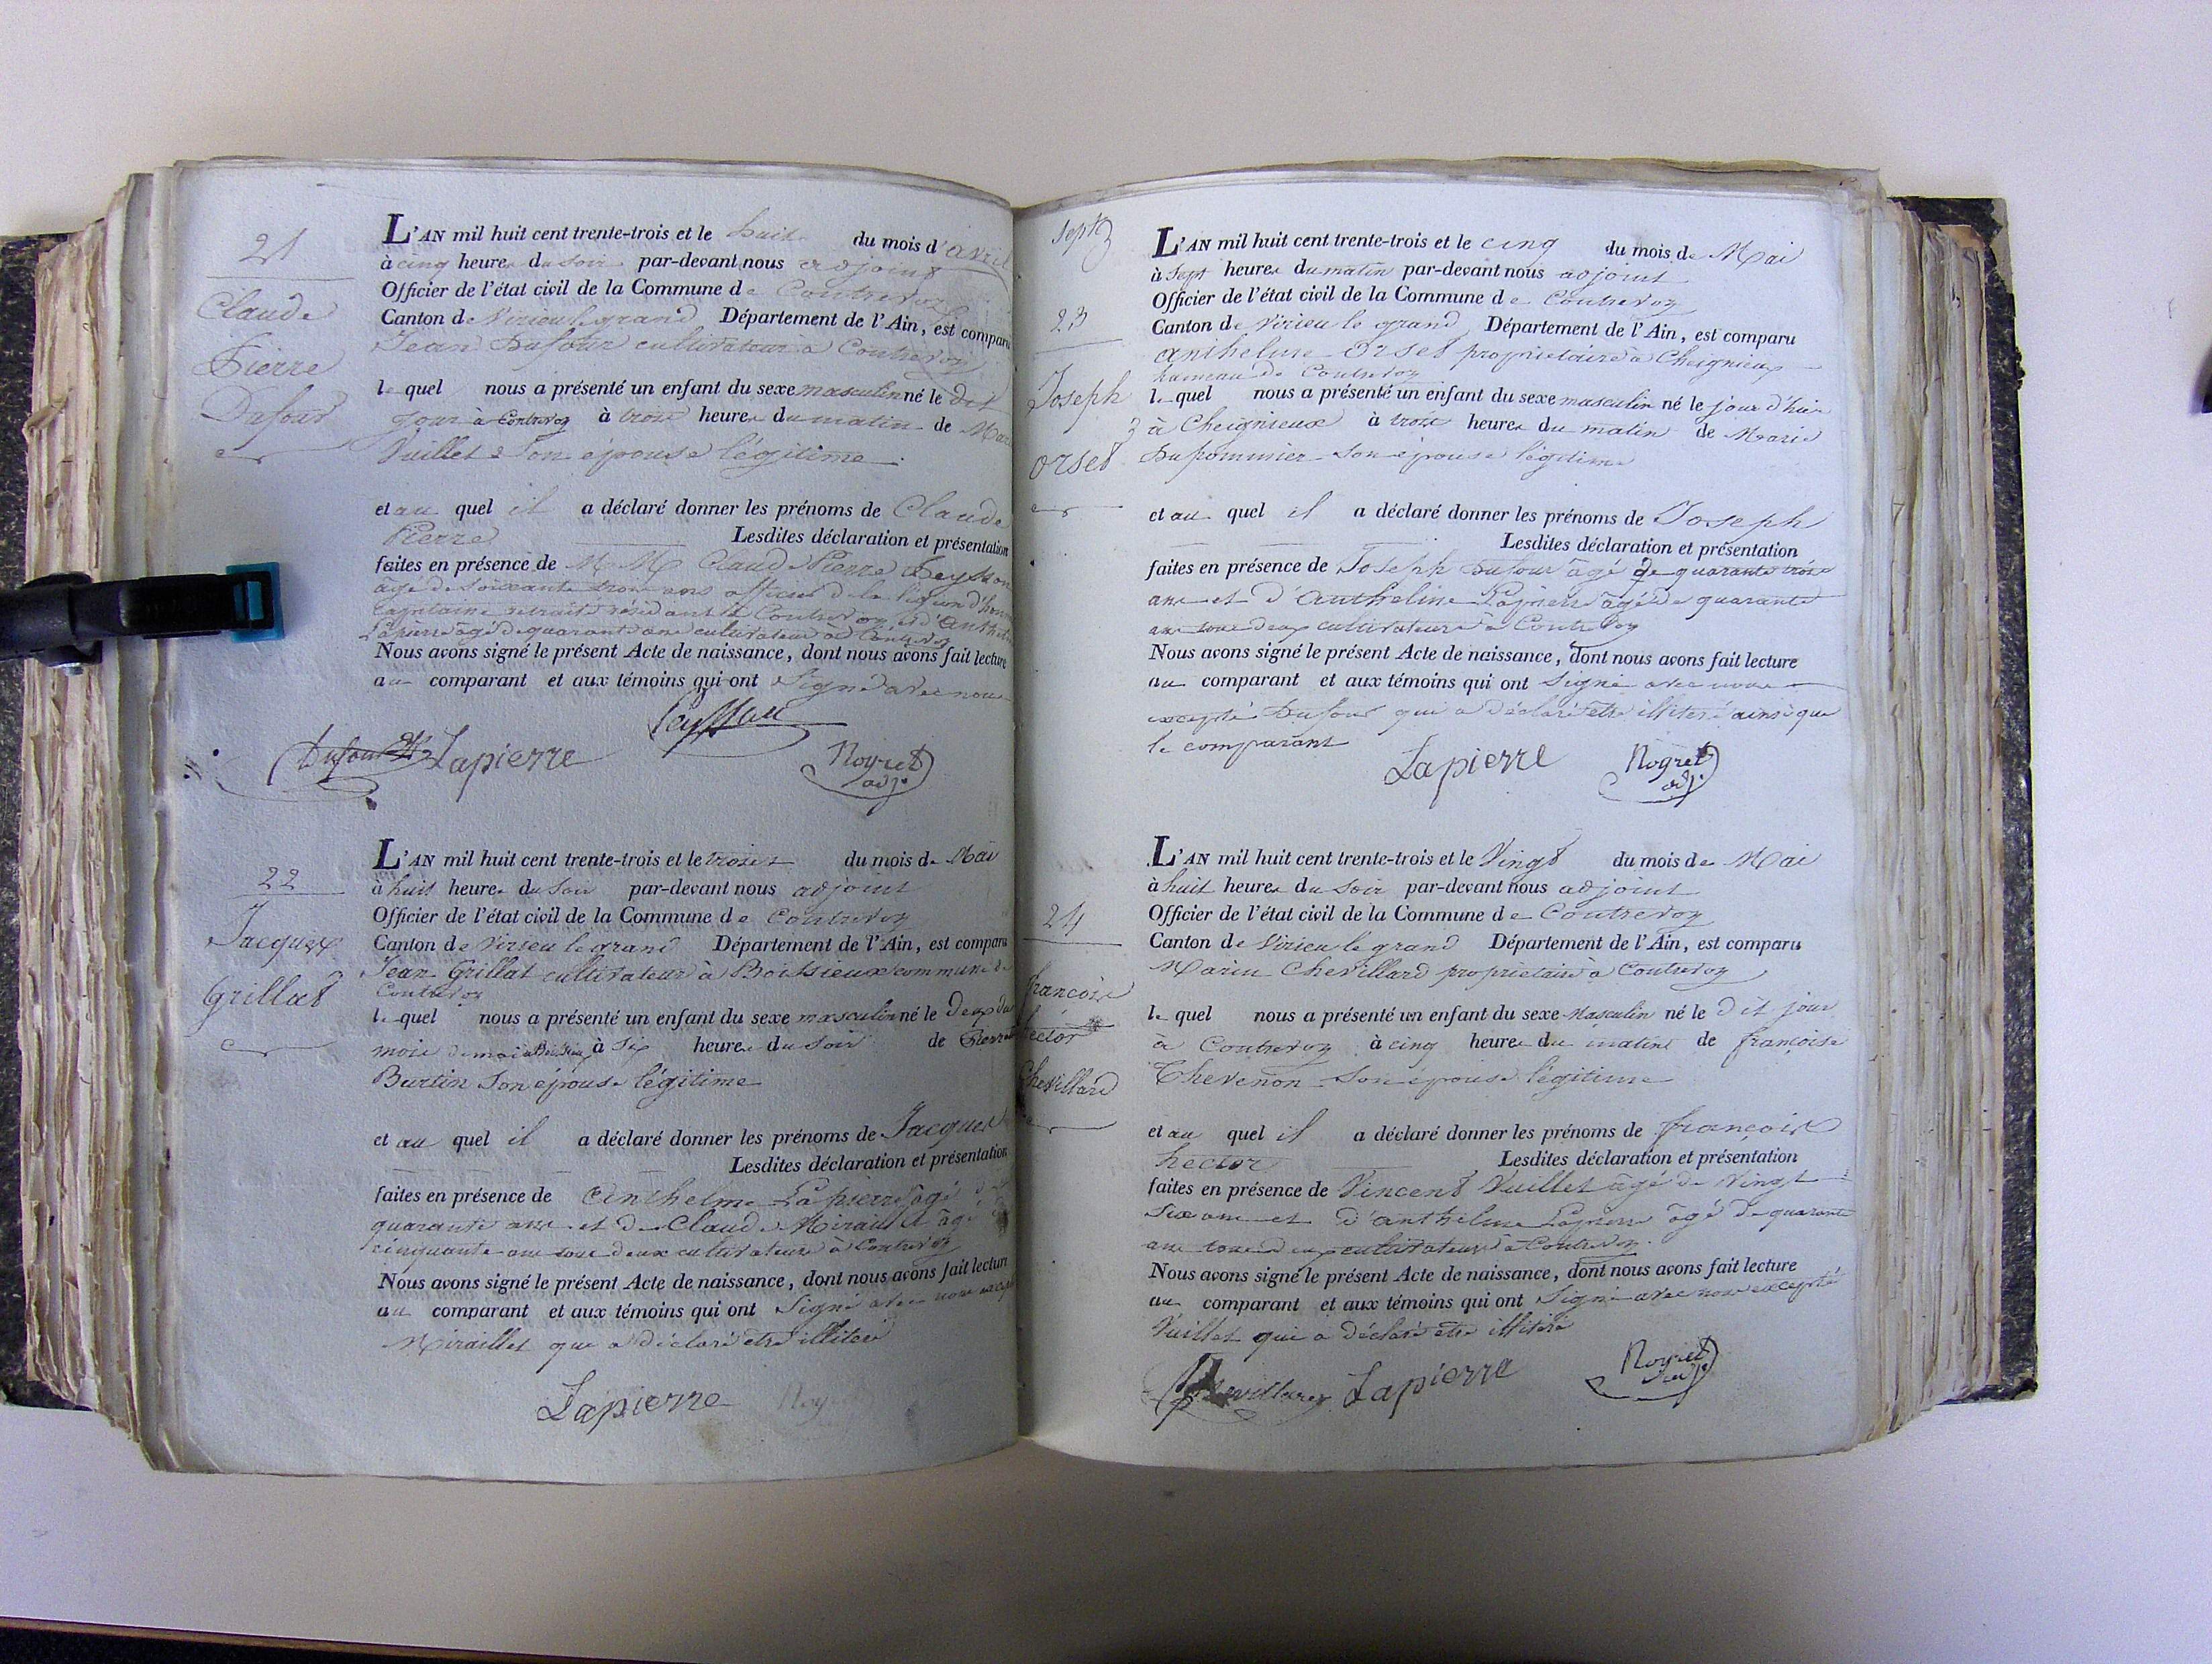 21
Claude
Pierre
Dufour
L'AN mil huit cent trente-trois et le huit du mois d'avril
à cinq heures du soir par-devant nous adjoint
Officier de l'état civil de la Commune de Contrevoz
Canton de Virieu le grand Département de l'Ain, est comparu
Jean Dufour cultivateur à Contrevoz
lequel nous a présenté un enfant du sexe masculin né le dit
jour à Contrevoz à trois heures du matin de
Vuillet son épouse légitime
et au quel il a déclaré donner les prénoms de Claude
Pierre Lesdites déclaration et présentation
faites en présence de M M Claude Pierre Peysson
âgé de soixante trois ans officier de la légion d'
capitaine retraité résidant à Contrevoz et d'
Lapierre âgé de quarante ans cultivateur à Contrevoz
Nous avons signé le présent Acte de naissance, dont nous avons fait lecture
au comparant et aux témoins qui ont signé avec nous
Peysson
Dufour Lapierre Noyret
adj.
22
Jacques
Grillat
L'AN mil huit cent trente-trois et le trois du mois de Mai
à huit heures du soir par-devant nous adjoint
Officier de l'état civil de la Commune de Contrevoz
Canton de Virieu le grand Département de l'Ain, est comparu
Jean Grillat cultivateur à Boissieux commune de
Contrevoz
lequel nous a présenté un enfant du sexe masculin né le deux du
mois de mai à Boissieux à six heures du soir de
Burtin son épouse légitime
et au quel il a déclaré donner les prénoms de Jacques
Lesdites déclaration et présentation
faites en présence de Anthelme Lapierre âgé de
quarante ans et de Claude Miraillet âgé
cinquante ans tous deux cultivateurs à Contrevoz
Nous avons signé le présent Acte de naissance, dont nous avons fait lecture
au comparant et aux témoins qui ont signé avec nous excepté
Miraillet que a déclaré etre illiteré
Lapierre Noyret
Sept
23
Joseph
Orset
L'AN mil huit cent trente-trois et le cinq du mois de Mai
à Sept heures du matin par-devant nous adjoint
Officier de l'état civil de la Commune de Contrevoz
Canton de Virieu le grand Département de l'Ain, est comparu
anthelme Orset propriétaire à Cheignieux
hameau de Contrevoz
lequel nous a présenté un enfant du sexe masculin né le jour d'hier
à Cheignieux à trois heures du matin de Marie
Dupommier son épouse légitime
et au quel il a déclaré donner les prénoms de Joseph
Lesdites déclaration et présentation
faites en présence de Joseph Dufour âgé de quarante trois
ans et d'anthelme Lapierre âgé de quarante
ans tous deux cultivateurs à Contrevoz
Nous avons signé le présent Acte de naissance, dont nous avons fait lecture
au comparant et aux témoins qui ont signé avec nous
excepté Dufour qui a déclaré etre illiteré ainsi que
le comparant
Lapierre Noyret
adj.
24
françois
hector
Chevillard
L'AN mil huit cent trente-trois et le Vingt du mois de Mai
à huit heures du soir par-devant nous adjoint
Officier de l'état civil de la Commune de Contrevoz
Canton de Virieu le grand Département de l'Ain, est comparu
Marin Chevillard propriétaire à Contrevoz
lequel nous a présenté un enfant du sexe Masculin né le dit jour
à Contrevoz à cinq heures du matin de françoise
Thevenon son épouse légitime
et au quel il a déclaré donner les prénoms de françois
hector Lesdites déclaration et présentation
faites en présence de Vincent Vuillet âgé de Vingt
Six ans et d'anthelme Lapierre âgé de quarante
ans tous deux cultivateurs à Contrevoz
Nous avons signé le présent Acte de naissance, dont nous avons fait lecture
au comparant et aux témoins qui ont signé avec nous excepté
Vuillet qui a déclaré etre illiteré
Chevillard Lapierre Noyret
adj.